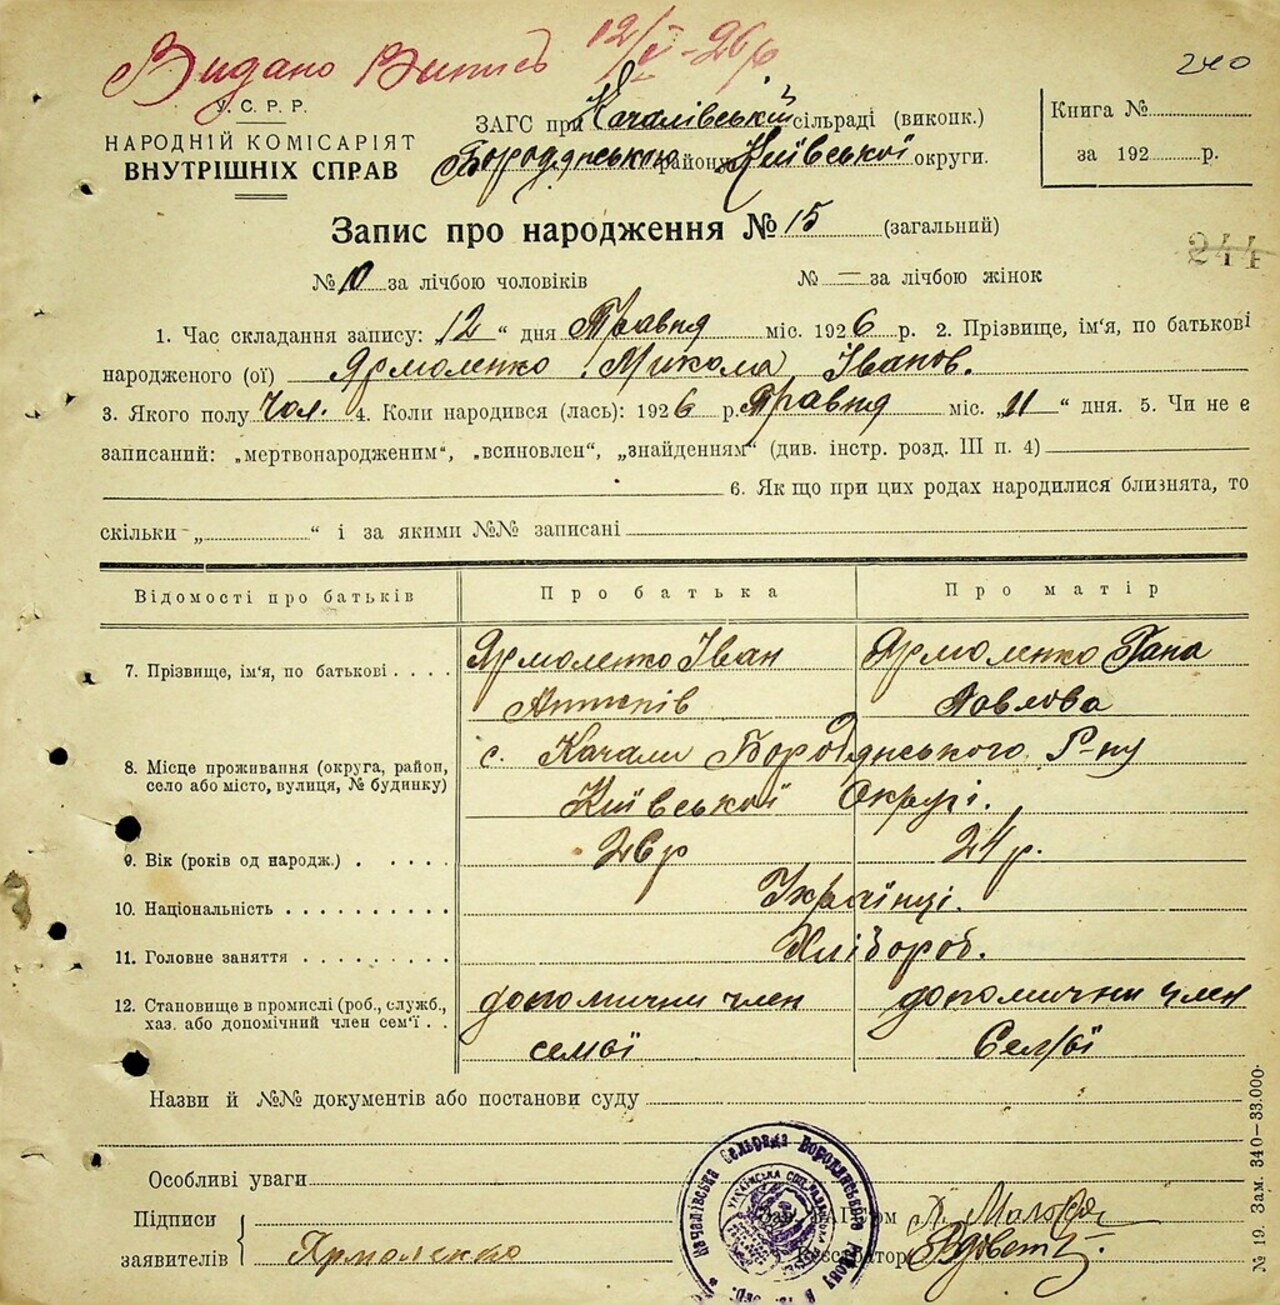 Видано Витись 12/V-26 р
240
У. С. Р. Р.
НАРОДНІЙ КОМІСАРІЯТ
ВНУТРІШНІХ СПРАВ
ЗАГС при Качалівській сільраді (виконк.)
Бородянського району Київської округи.
Книга №
за 192 р.
Запис про народження № 15 (загальний)
244
№ 10 за лічбою чоловіків № = за лічбою жінок
1. Час складання запису: 12 “ дня Травня міс. 1926 р. 2. Прізвище, ім‘я, по батькові
народженого (ої) Ярмоленко Микола Іванов.
3. Якого полу чол. 4. Коли народився (лась): 1926 р. Травня міс. „11“ дня. 5. Чи не є
записаний: „мертвонародженим“, „всиновлен“, „знайденням“ (див. інстр. розд. III п. 4)
6. Як що при цих родах народилися близнята, то
скільки „ “ і за якими №№ записані
Відомості про батьків Про батька Про матір
7. Прізвище, ім‘я, по батькові . . . . Ярмоленко Іван Ярмоленко Гана
Антонів Павлова
8. Місце проживання (округа, район, с. Качали Бородянського Р-ну
село або місто, вулиця, № будинку)
Київської Округі.
9. Вік (років од народж.) . . . . . 26 р 24 р.
10. Національність . . . . . . . . . . Українці.
11. Головне заняття . . . . . . . . . Хлібороб.
12. Становище в промислі (роб., служб., допомични член допомични член
хаз. або допомічний член сем‘ї . .
семьї Семьї
Назви й №№ документів або постанови суду
Особливі уваги
Підписи
заявителів Ярмоленко
Реєстратор
Качалівська Сельрада Бородянського Району
№ 19. Зам. 340—33.000.